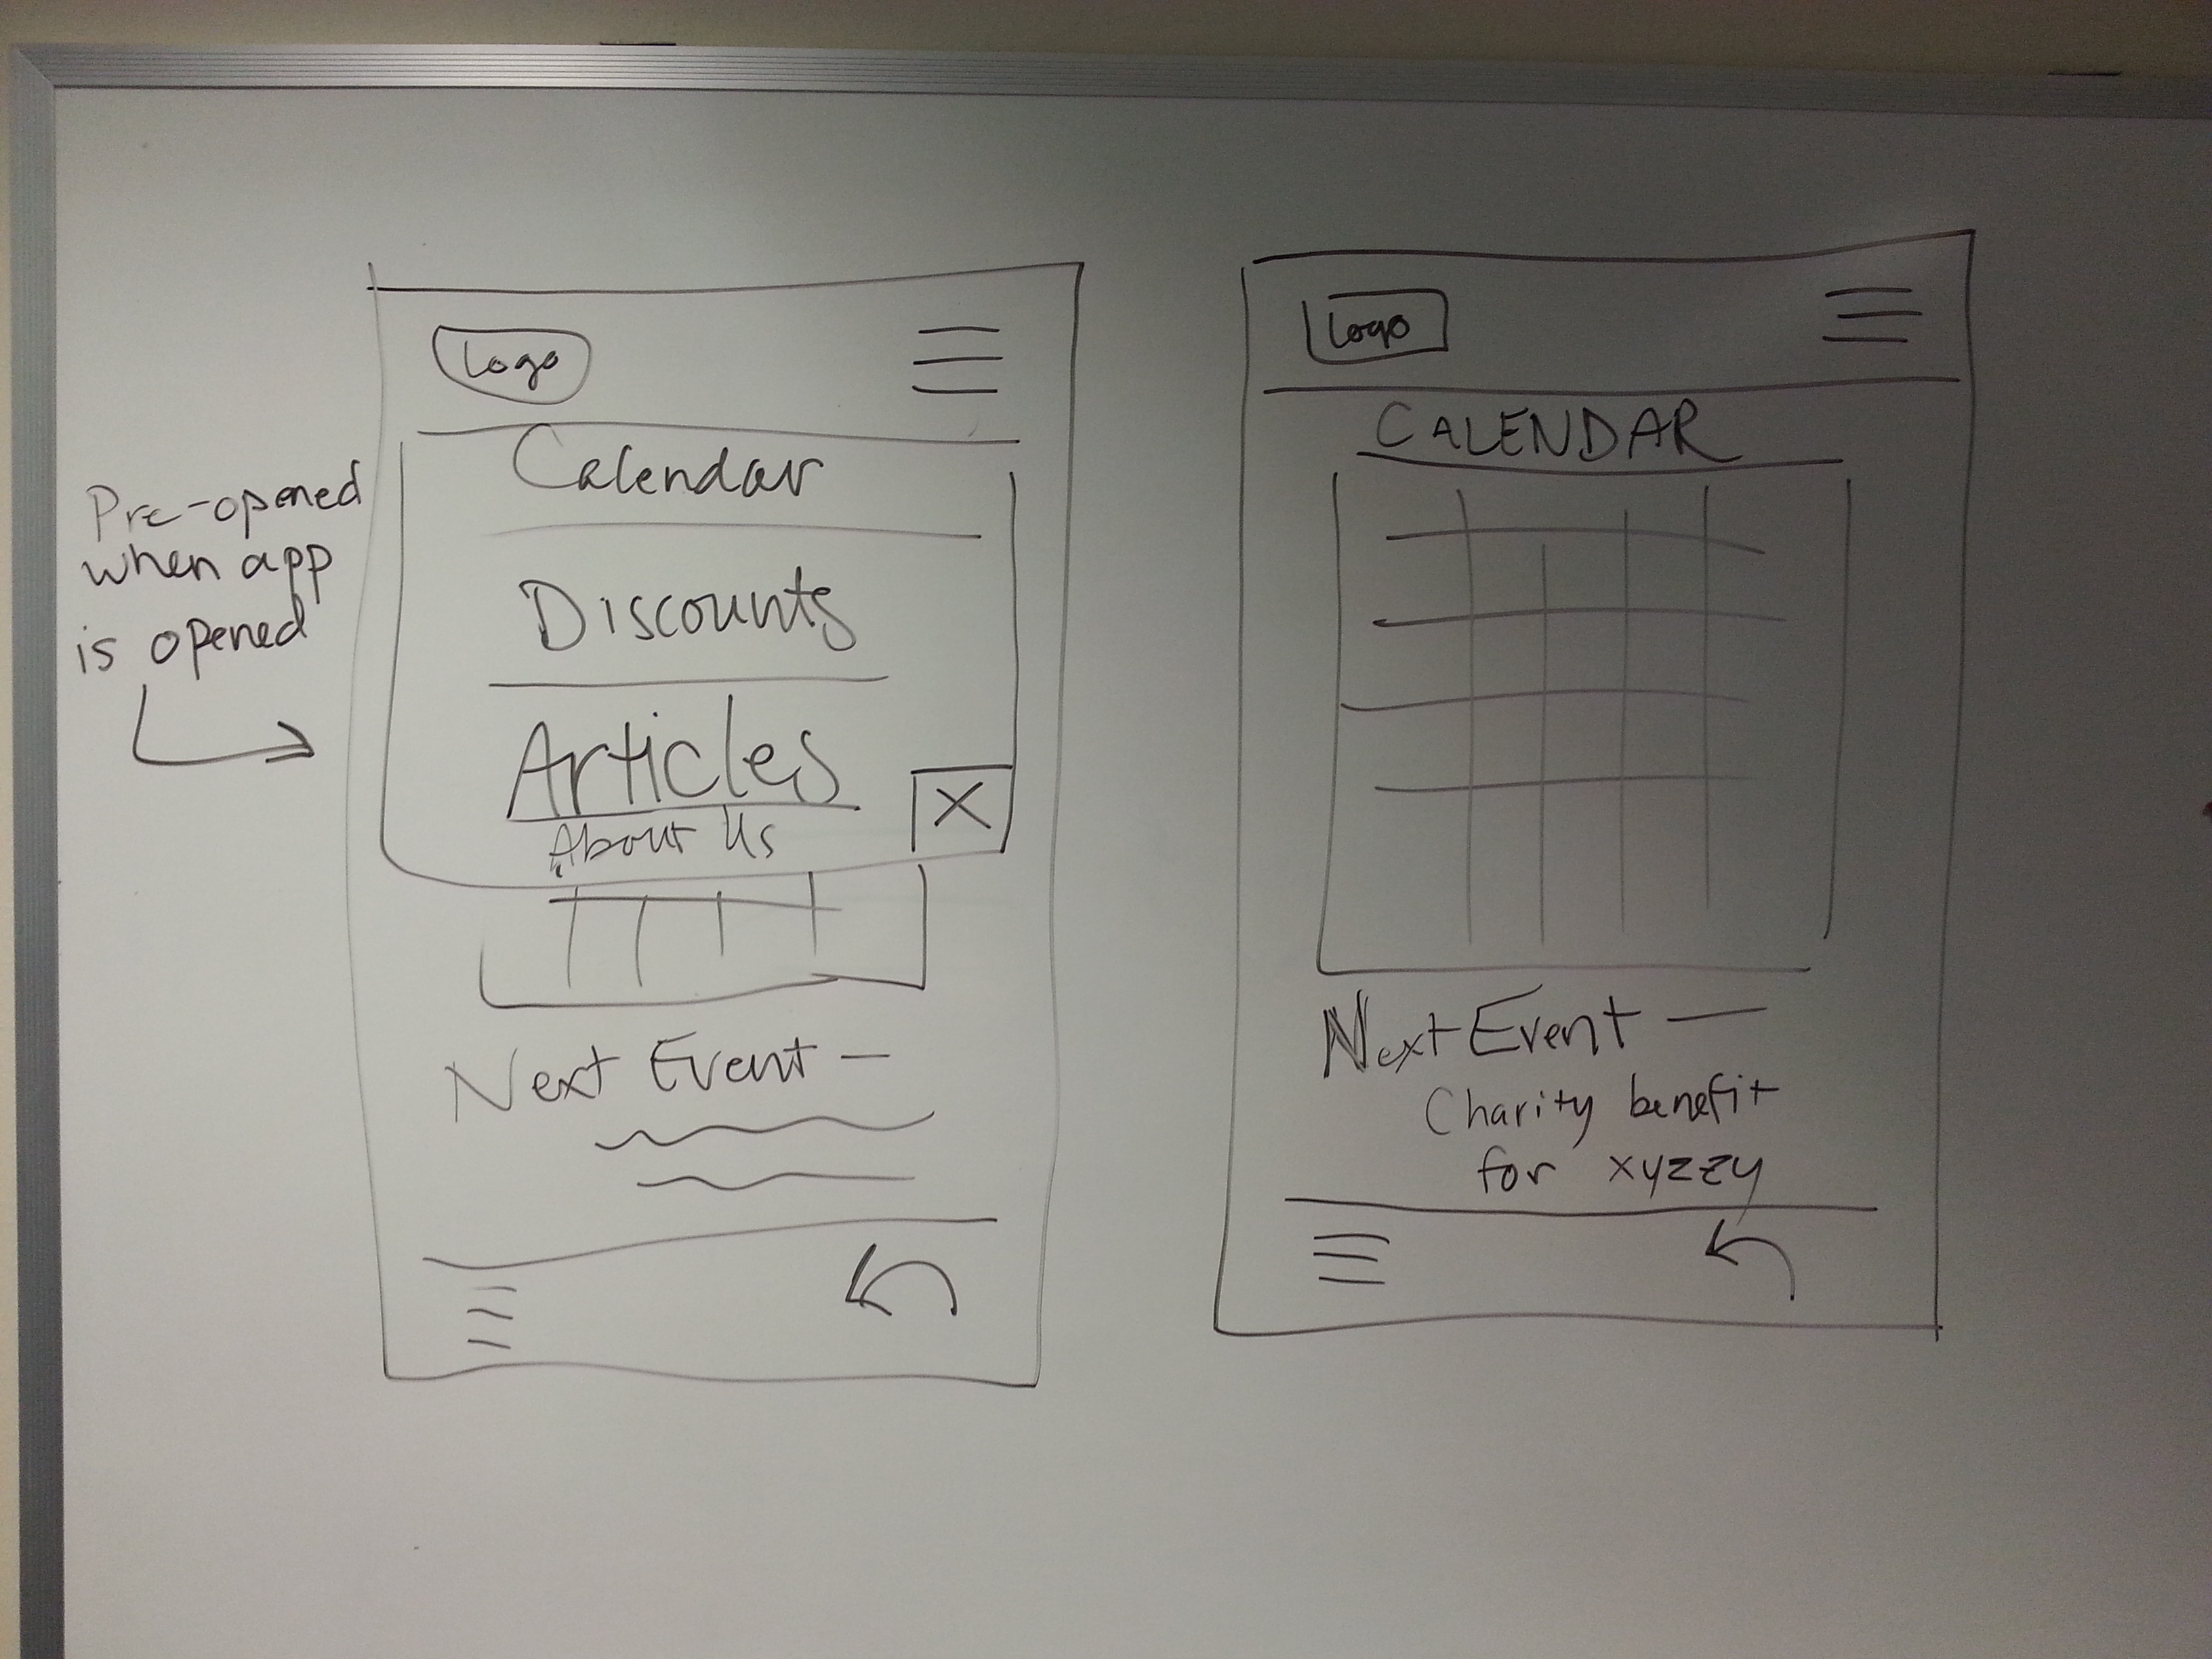 Pre-opened
when app
is opened
Logo
Calendar
Discounts
Articles
About Us
X
Next Event —
Logo
CALENDAR
Next Event —
Charity benefit
for xyzzy